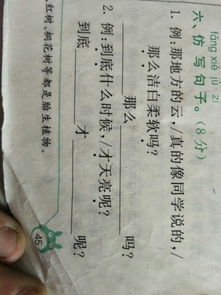 fǎng xiě jù zi
六、仿写句子。(8分)
1. 例:那地方的云,真的像同学说的,/
那么洁白柔软吗?
那么 吗?
2. 例:到底什么时候,/才天亮呢?
到底 才 呢?
红树、桐花树等都是胎生植物。
45